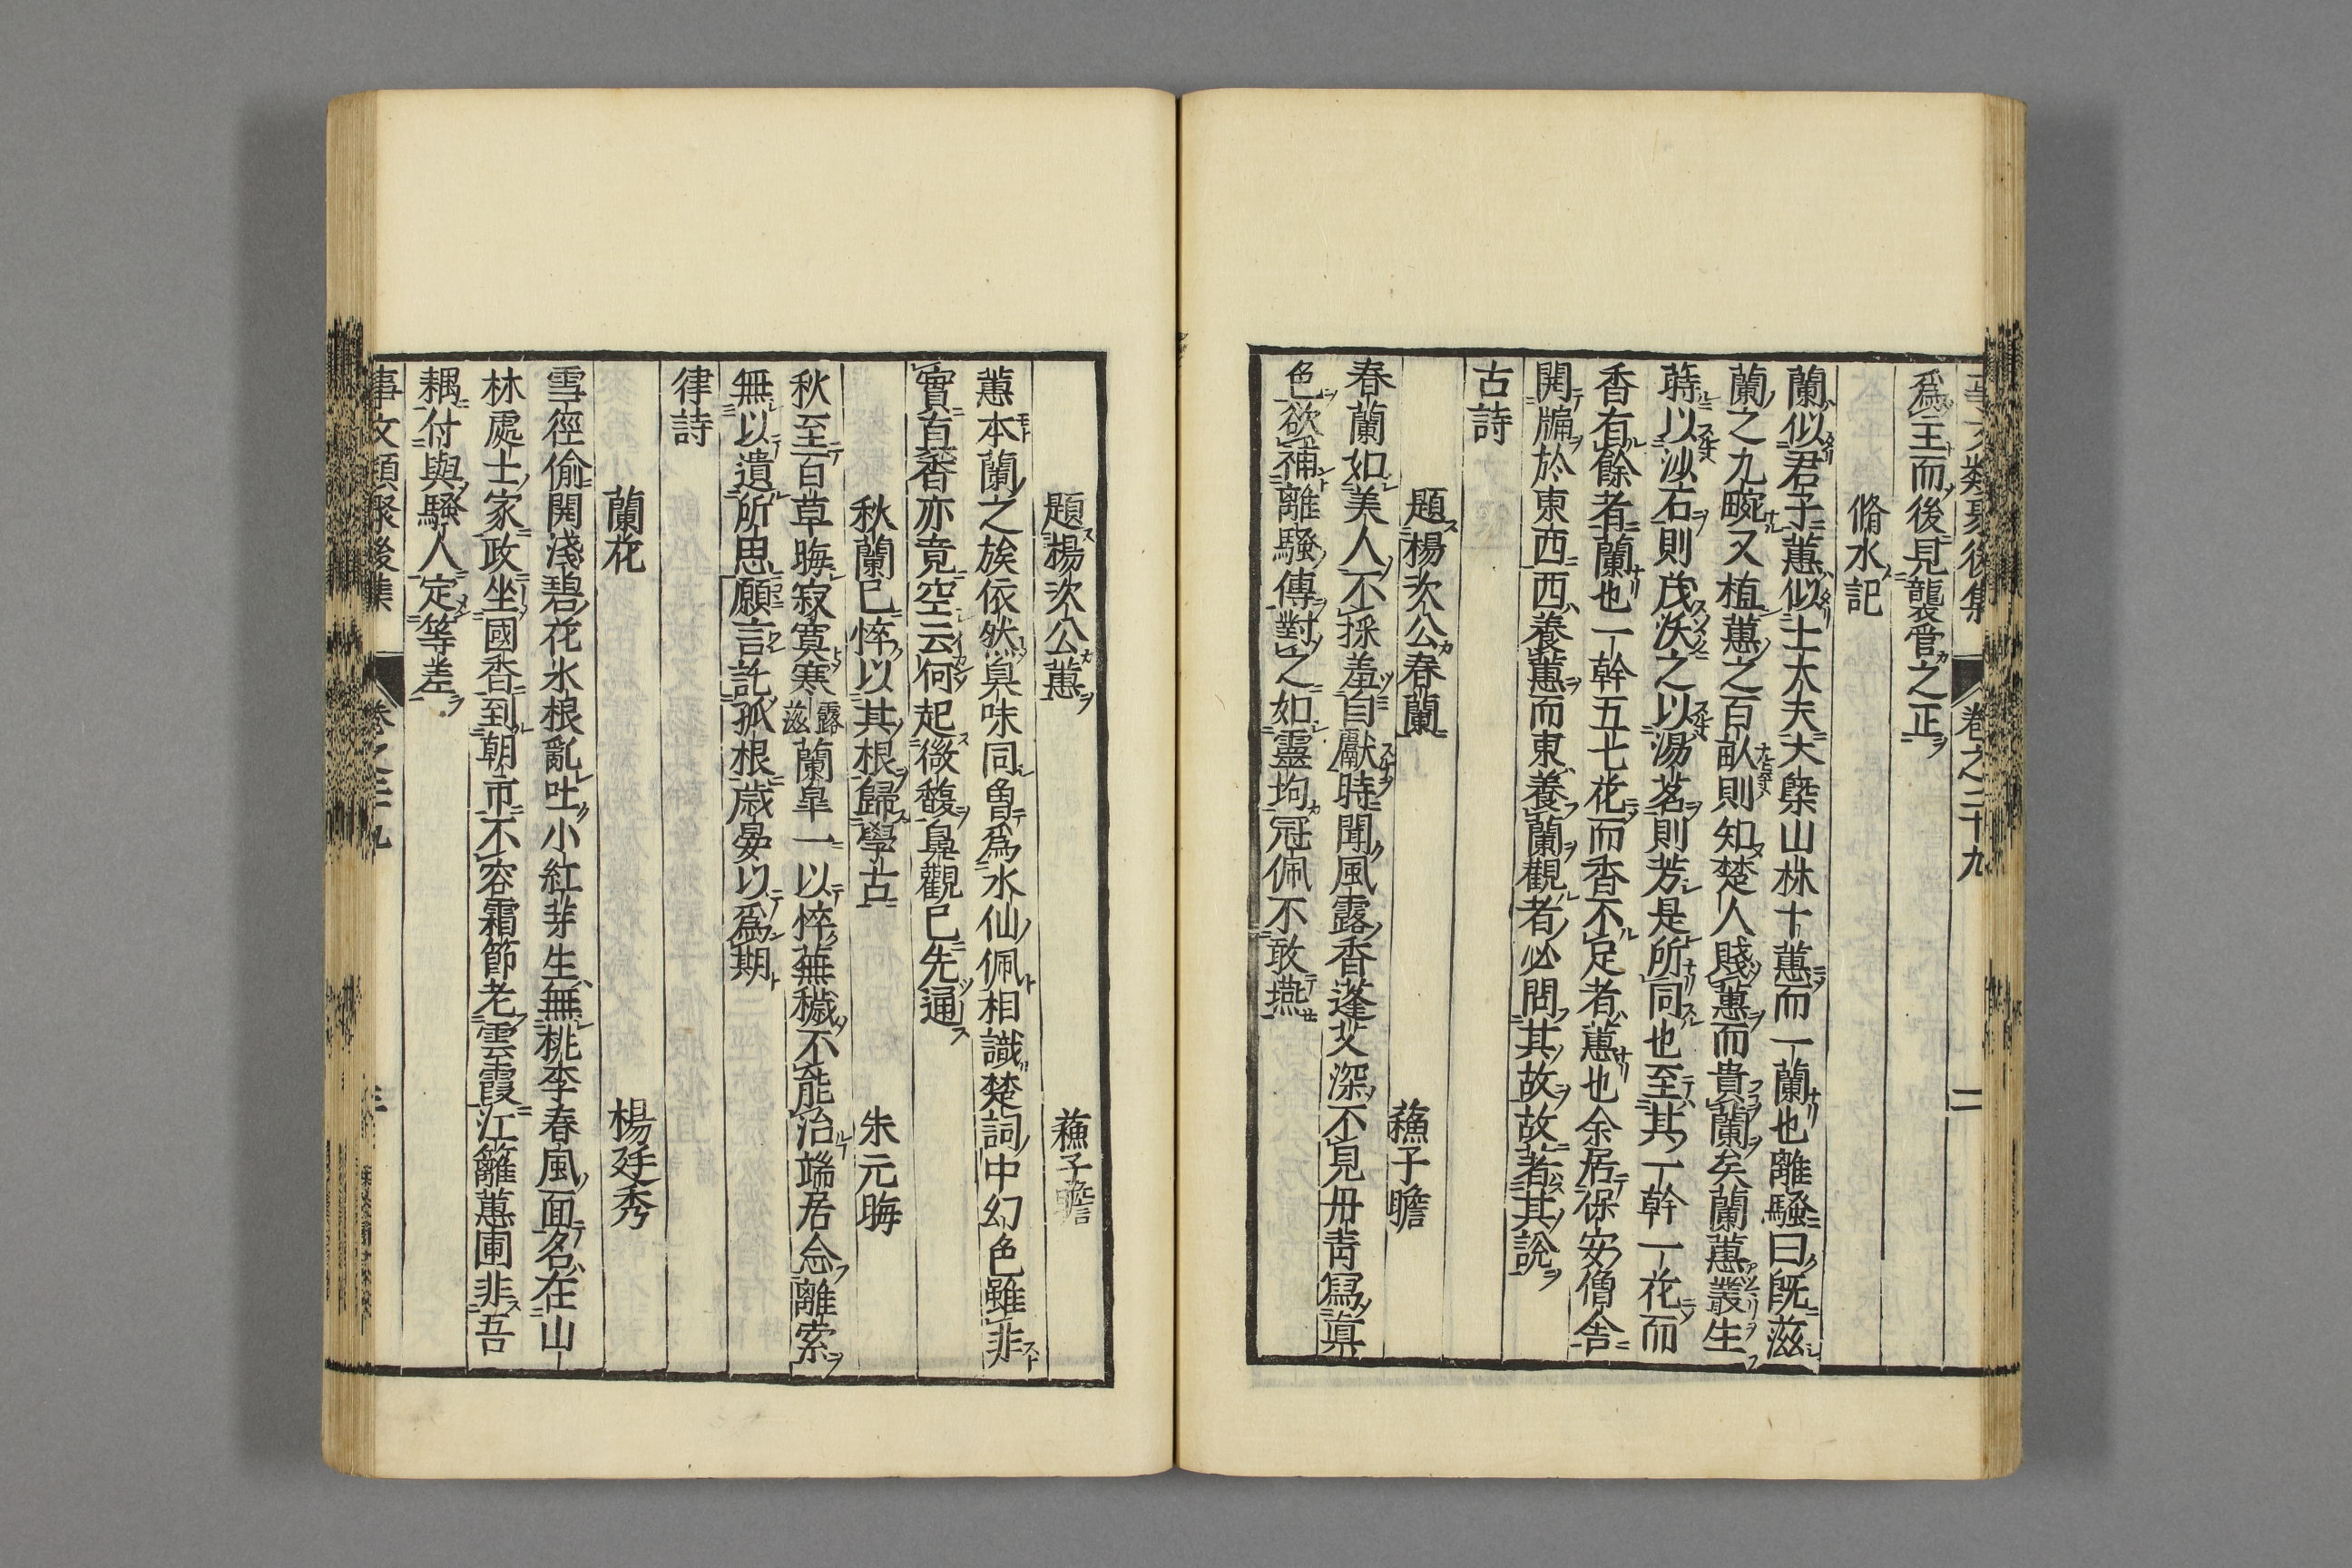 事文類聚後集 卷之二十九 二
為王而後見襲管之正
脩水記
蘭似君子蕙似士大夫大槩山林十蕙而一蘭也離騷曰既滋
蘭之九畹又植蕙之百畝則知楚人賤蕙而貴蘭矣蘭蕙叢生
蒔以沙石則茂沃之以湯茗則芳是所同也至其一幹一花而
香有餘者蘭也一幹五七花而香不足者蕙也余居保安僧舍
開牖於東西西養蕙而東養蘭觀者必問其故故著其說
古詩
題楊次公春蘭 蘓子瞻
春蘭如美人不採羞自獻時聞風露香蓬艾深不見丹青寫真
色欲補離騷傳對之如靈均冠佩不敢燕
題楊次公蕙 蘓子瞻
蕙本蘭之族依然臭味同曾為水仙佩相識楚詞中幻色雖非
實真香亦竟空云何起微馥鼻觀已先通
秋蘭已悴以其根歸學古 朱元晦
秋至百草晦寂寞寒露滋蘭皐一以悴蕪穢不能治端居念離索
無以遺所思願言託孤根歲晏以為期
律詩
蘭花 楊廷秀
雪徑偷開淺碧花氷根亂吐小紅芽生無桃李春風面名在山
林處士家政坐國香到朝市不容霜節老雲霞江蘺蕙圃非吾
耦付與騷人定等差
事文類聚後集 卷之二十九 三